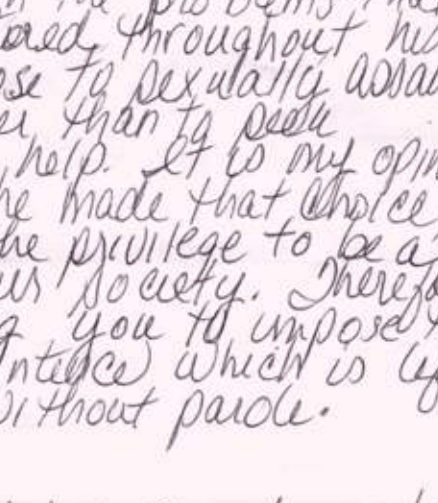 problems
ored throughout hi
ose to sexually assau
er than to seek
help. It is my opin
he made that choice
he privilege to be a
our society. Therefo
g you to impose
ntence which is
without parole.